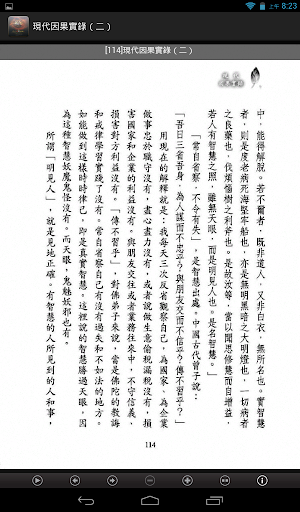 上午 8:23
現代因果實錄（二）
[114]現代因果實錄（二）
中，能得解脫。若不爾者，既非道人，又非白衣，無所名也。實智慧
者，則是度老病死海堅牢船也，亦是無明黑暗之大明燈也，一切病者
之良藥也，伐煩惱樹之利斧也。是故汝等，當以聞思修慧而自增益，
若人有智慧之照，雖無天眼，而是明見人也。是名智慧。」
「常自省察，不令有失」，是智慧出處。中國古代曾子說：
「吾日三省吾身，為人謀而不忠乎？與朋友交而不信乎？傳不習乎？」
用現在的解釋就是：我每天三次反省觀察自己。為國家、為企業
做事忠於職守沒有，盡心盡力沒有，或者說做生意偷稅漏稅沒有，損
害國家和企業的利益沒有。與朋友交往或者業務往來中，不守信義、
損害對方利益沒有。「傳不習乎」，對佛弟子來說，當是佛陀的教誨
和戒律學習實踐了沒有。常自省察自己有沒有過失和不如法的地方。
如能做到這樣時時律己，即是真實智慧。這裡說的智慧勝過天眼，因
為這種智慧妖魔鬼怪沒有。而天眼，鬼魅妖邪也有。
所謂「明見人」，就是見地正確。有智慧的人所見到的人和事，
114